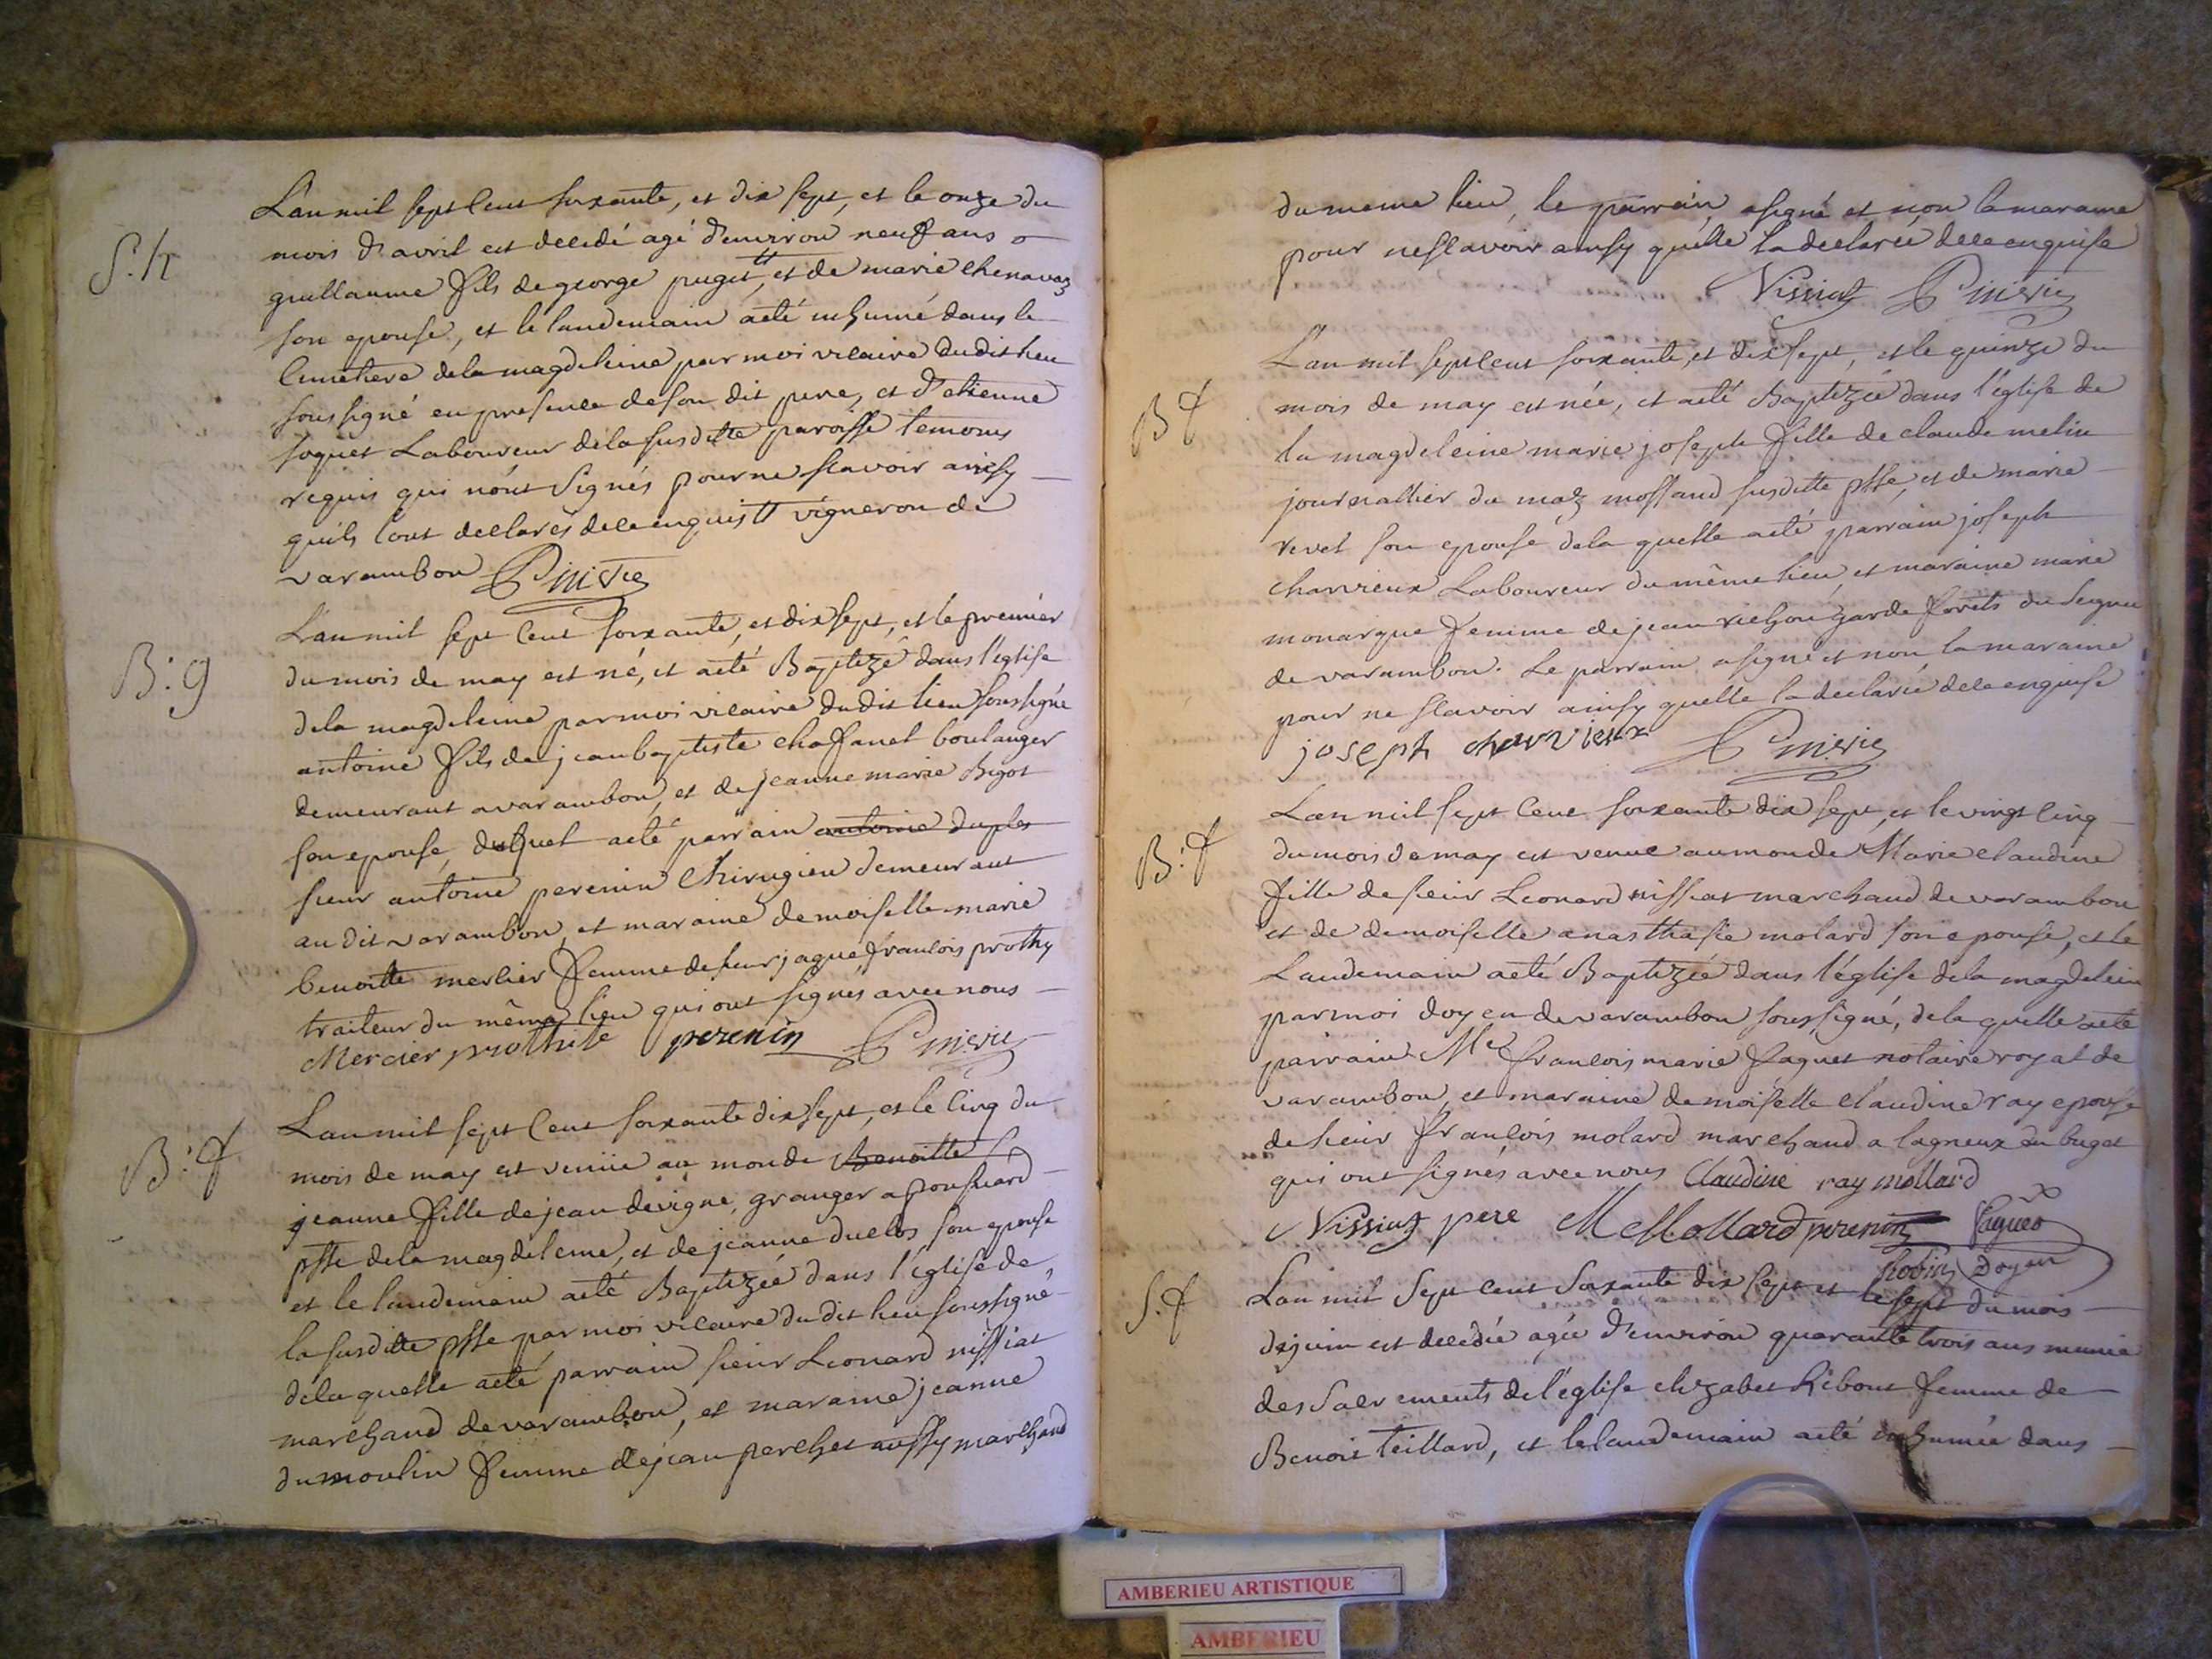 L'an mil sept cent soixante, et dix sept, et le onze du
S. h
mois d'avril est decedé agé d'environ neuf ans
guillaume fils de george puget tt et de marie chenavaz
son epouse, et le landemain aeté inhumé dans le
cimetiere dela magdeleine par moi vicaire dudit lieu
soussigné en presence deson dit pere, et d'etienne
soquet Laboureur dela susditte paroisse temoins
requis qui n'ont signés pour ne scavoir ainsy
quils l'ont declarés dece enquis tt vigneron de
varambon
L'an mil sept cent soixante, et dix sept, et le premier
B: g
du mois de may est né, et aeté Baptizé dans l'eglise
dela magdeleine par moi vicaire dudit lieu soussigné
antoine fils de jean baptiste chaffanel boulanger
demeurant avarambon, et de jeanne marie Bigot
son epouse, duquel aeté parrain antoine duples
sieur antoine perenin Chirugien demeurant
au dit varambon, et maraine demoiselle marie
benoitte merlier femme de sieur jaque francois prothy
traiteur du même lieu qui ont signés avec nous
Mercier perenin
L'an mil sept cent soixante dix sept, et le cinq du
B: f
mois de may est venüe au monde Benoitte
jeanne fille de jean devigne, granger a
psse dela magdeleine, et de jeanne duclos son epouse
et le landemain aeté Baptizée dans l'église de
la susditte psse par moi vicaire du dit lieu soussigné
dela quelle aeté parrain sieur Leonard nissiat
marchand de varambon, et maraine jeanne
dumoulin femme de jean perchet aussy marchand
du meme lieu, le parrain asigné et non la maraine
pour nescavoir ainsy qu'elle la declarée dece enquise
Nissiat
L'an mil sept cent soixante, et dix sept, et le quinze du
B f
mois de may est née, et aeté Baptizée dans l'église de
la magdeleine marie joseph fille de claude melin
journallier du maz mossand susditte psse, et de marie
revel son epouse dela quelle aeté parrain joseph
charvieux Laboureur du même lieu, et maraine marie
monarque femme de jean richon garde forets du Seigneu
de varambon. Le parrain asigné et non la maraine
pour ne scavoir ainsy quelle la declarée dece enquise
joseph charvieux
L'an mil sept cent soixante dix sept, et le vingt cinq
B: f
du mois de may est venue au monde Marie claudine
fille de sieur Leonard nissiat marchand de varambon
et de demoiselle anasthasie molard son epouse, et le
Landemain aeté Baptizée dans l'église dela magdelein
par moi doyen de varambon soussigné, dela quelle aeté
parrain Me francois marie faguet notaire royal de
varambon, et maraine demoiselle claudine ray epouse
de sieur françois molard marchand a lagneux en buget
qui ont signés avec nous Claudine ray mollard
Nissiat pere M Mollard perenin faguet
robin Doyen
L'an mil Sept cent Soixante dix Sept et le sept du mois
S. f
de juin est decedée agée d'environ quarante trois ans munie
des Sacrements de l'église elizabet Ribout femme de
Benoit teillard, et le landemain aeté inhumée dans
AMBERIEU ARTISTIQUE
AMBERIEU